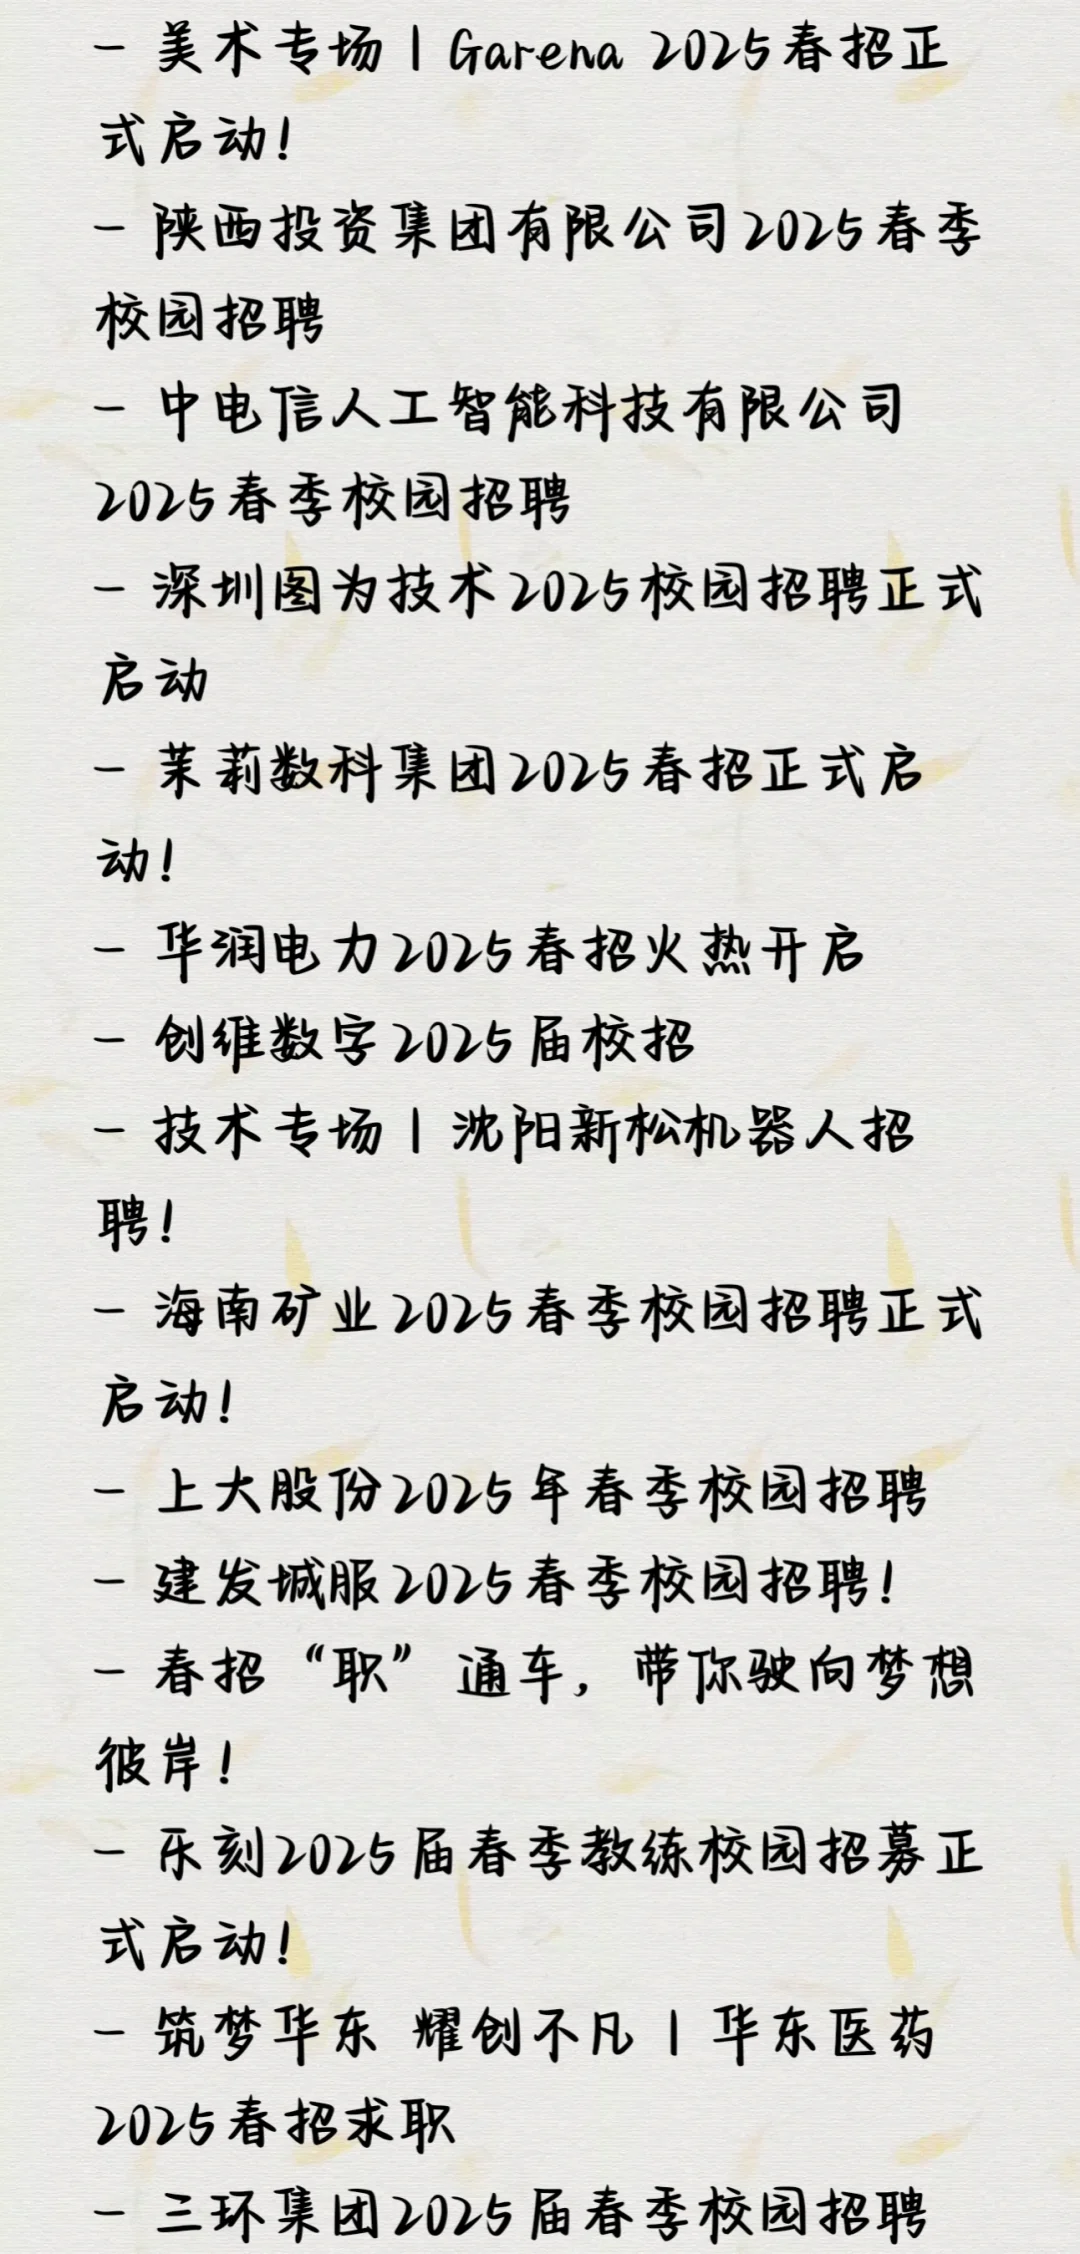 - 美术专场 | Garena 2025春招正
式启动！
- 陕西投资集团有限公司2025春季
校园招聘
- 中电信人工智能科技有限公司
2025春季校园招聘
- 深圳图为技术2025校园招聘正式
启动
- 茉莉数科集团2025春招正式启
动！
- 华润电力2025春招火热开启
- 创维数字2025届校招
- 技术专场 | 沈阳新松机器人招
聘！
- 海南矿业2025春季校园招聘正式
启动！
- 上大股份2025年春季校园招聘
- 建发城服2025春季校园招聘！
- 春招“职”通车，带你驶向梦想
彼岸！
- 乐刻2025届春季教练校园招募正
式启动！
- 筑梦华东 耀创不凡 | 华东医药
2025春招求职
- 三环集团2025届春季校园招聘